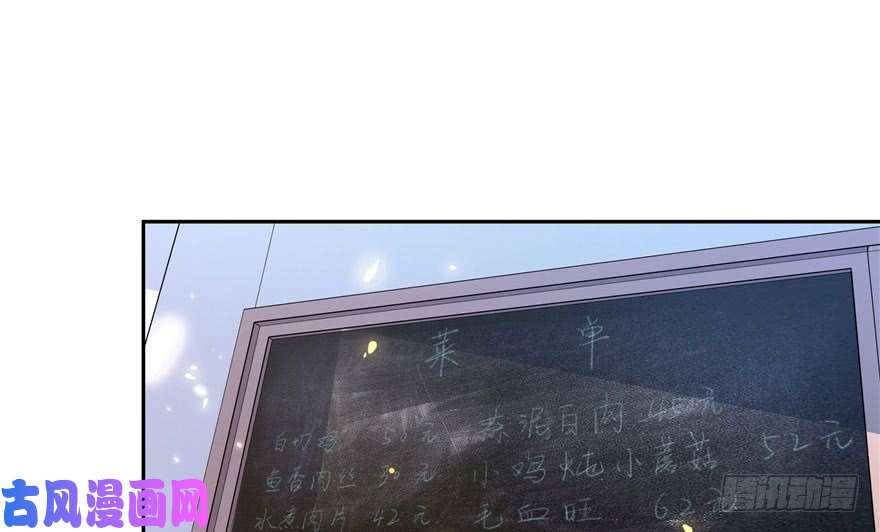 菜 单
白切鸡 58元 蒜泥白肉 48元
鱼香肉丝 30元 小鸡炖小蘑菇 52元
水煮肉片 42元 毛血旺 62元
古风漫画网
腾讯动漫